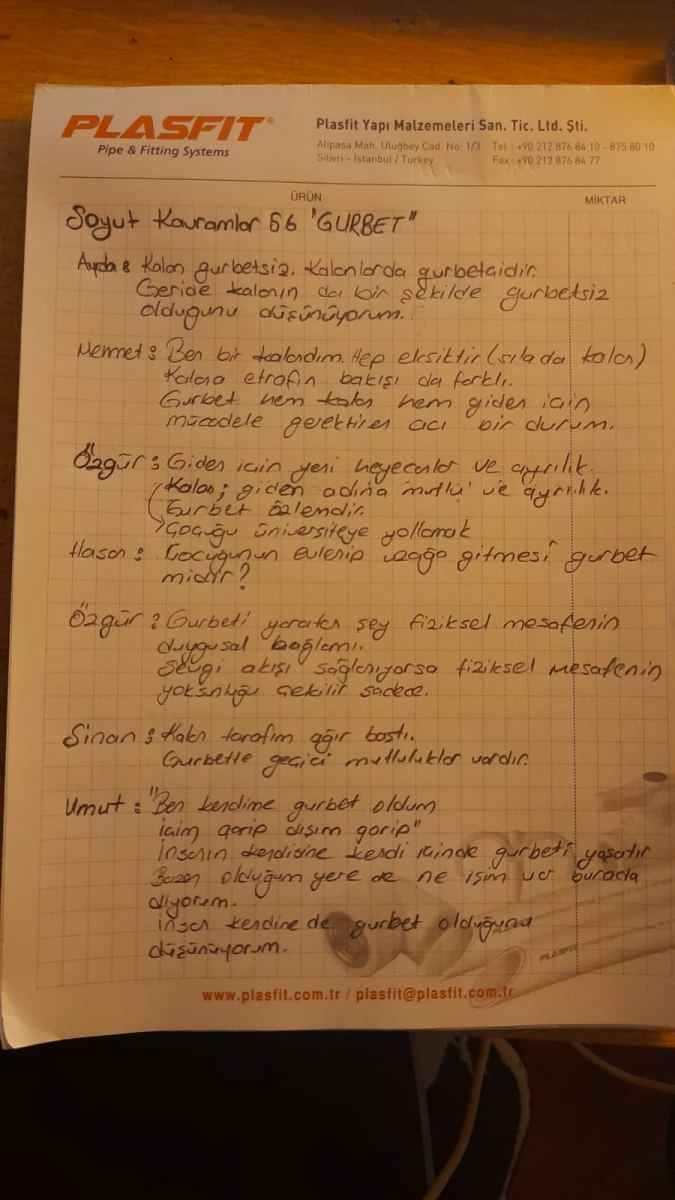 PLASFIT®
Pipe & Fitting Systems
Plasfit Yapı Malzemeleri San. Tic. Ltd. Şti.
Alipasa Mah. Uluğbey Cad. No: 1/3 Tel : +90 212 876 84 10 - 875 80 10
Silivri - İstanbul / Turkey Fax : +90 212 876 84 77
ÜRÜN MİKTAR
Soyut Kavramlar 56 "GURBET"
Ayda : Kalan gurbetsiz. Kalanlarda gurbetçidir.
Geride kalanın da bir şekilde gurbetsiz
olduğunu düşünüyorum.
Mehmet : Ben bir kalandım. Hep eksiktir (sıla da kalan)
Kalana etrafın bakışı da farklı.
Gurbet hem kalan hem giden için
mücadele gerektiren acı bir durum.
Özgür : Giden için yeni heyecanlar ve ayrılık.
Kalan; giden adına mutlu ve ayrılık.
Gurbet özlemdir.
Çocuğu üniversiteye yollamak
Hasan : Çocuğunun evlenip uzağa gitmesi gurbet
midir?
Özgür : Gurbeti yaratan şey fiziksel mesafenin
duygusal bağlamı.
Sevgi akışı sağlanıyorsa fiziksel mesafenin
yoksunluğu çekilir sadece.
Sinan : Kalan tarafım ağır bastı.
Gurbette geçici mutluluklar vardır.
Umut : "Ben kendime gurbet oldum
içim garip dışım garip"
İnsanın kendisine kendi içinde gurbeti yaşatır
Bazen olduğum yere de ne işim var burada
diyorum.
İnsan kendine de gurbet olduğunu
düşünüyorum.
PLASFIT
www.plasfit.com.tr / plasfit@plasfit.com.tr